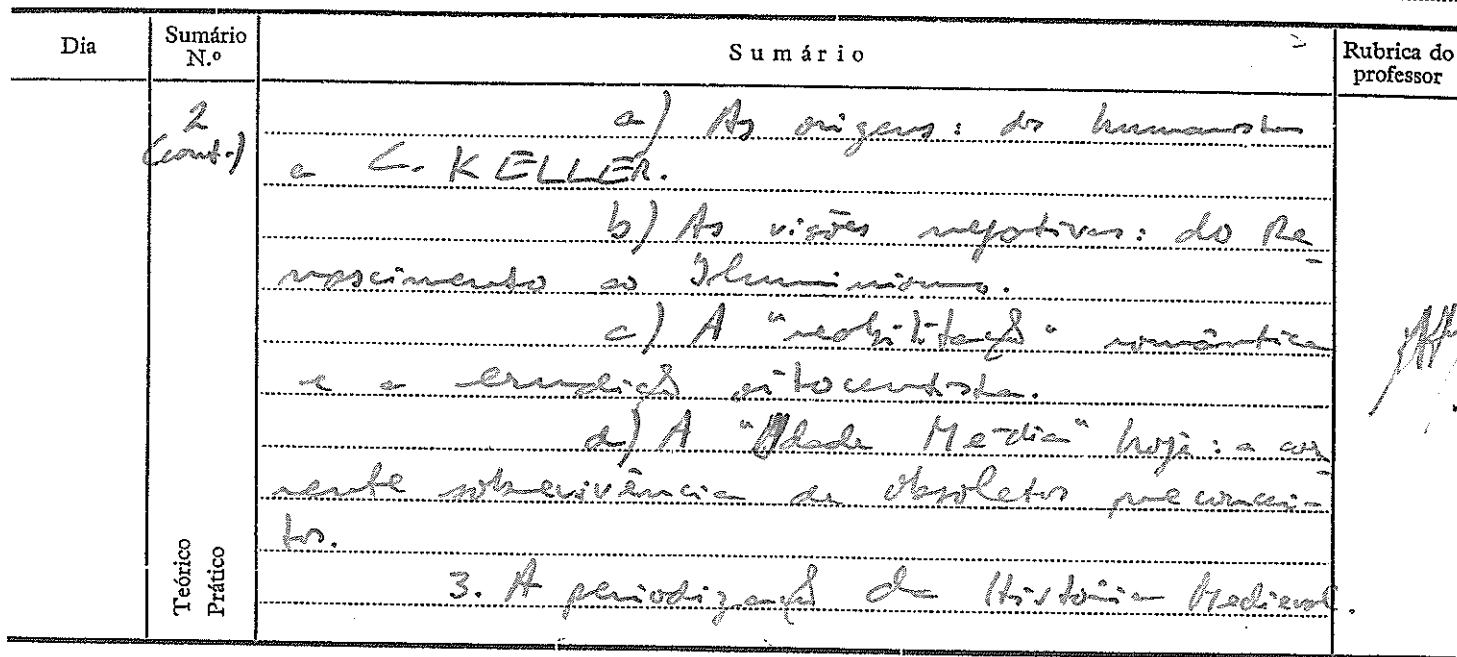 Dia
Sumário N.º
Sumário
Rubrica do professor
2
(cont.)
a) As origens: dos humanistas
a C. KELLER.
b) As visões negativas: do Re-
nascimento ao Iluminismo.
c) A "reabilitação" romântica
e a erudição oitocentista.
d) A "Idade Média" hoje: a cor-
rente sobrevivência de obsoletos preconcei-
tos.
3. A periodização da História Medieval.
Teórico
Prático